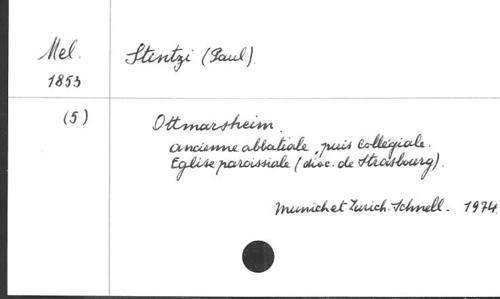 Mel.
1853
Stintzi (Paul).
(5)
Ottmarsheim.
ancienne abbatiale, puis Collégiale.
Eglise paroissiale (dioc. de Strasbourg).
Munich et Zurich. Schnell. - 1974.